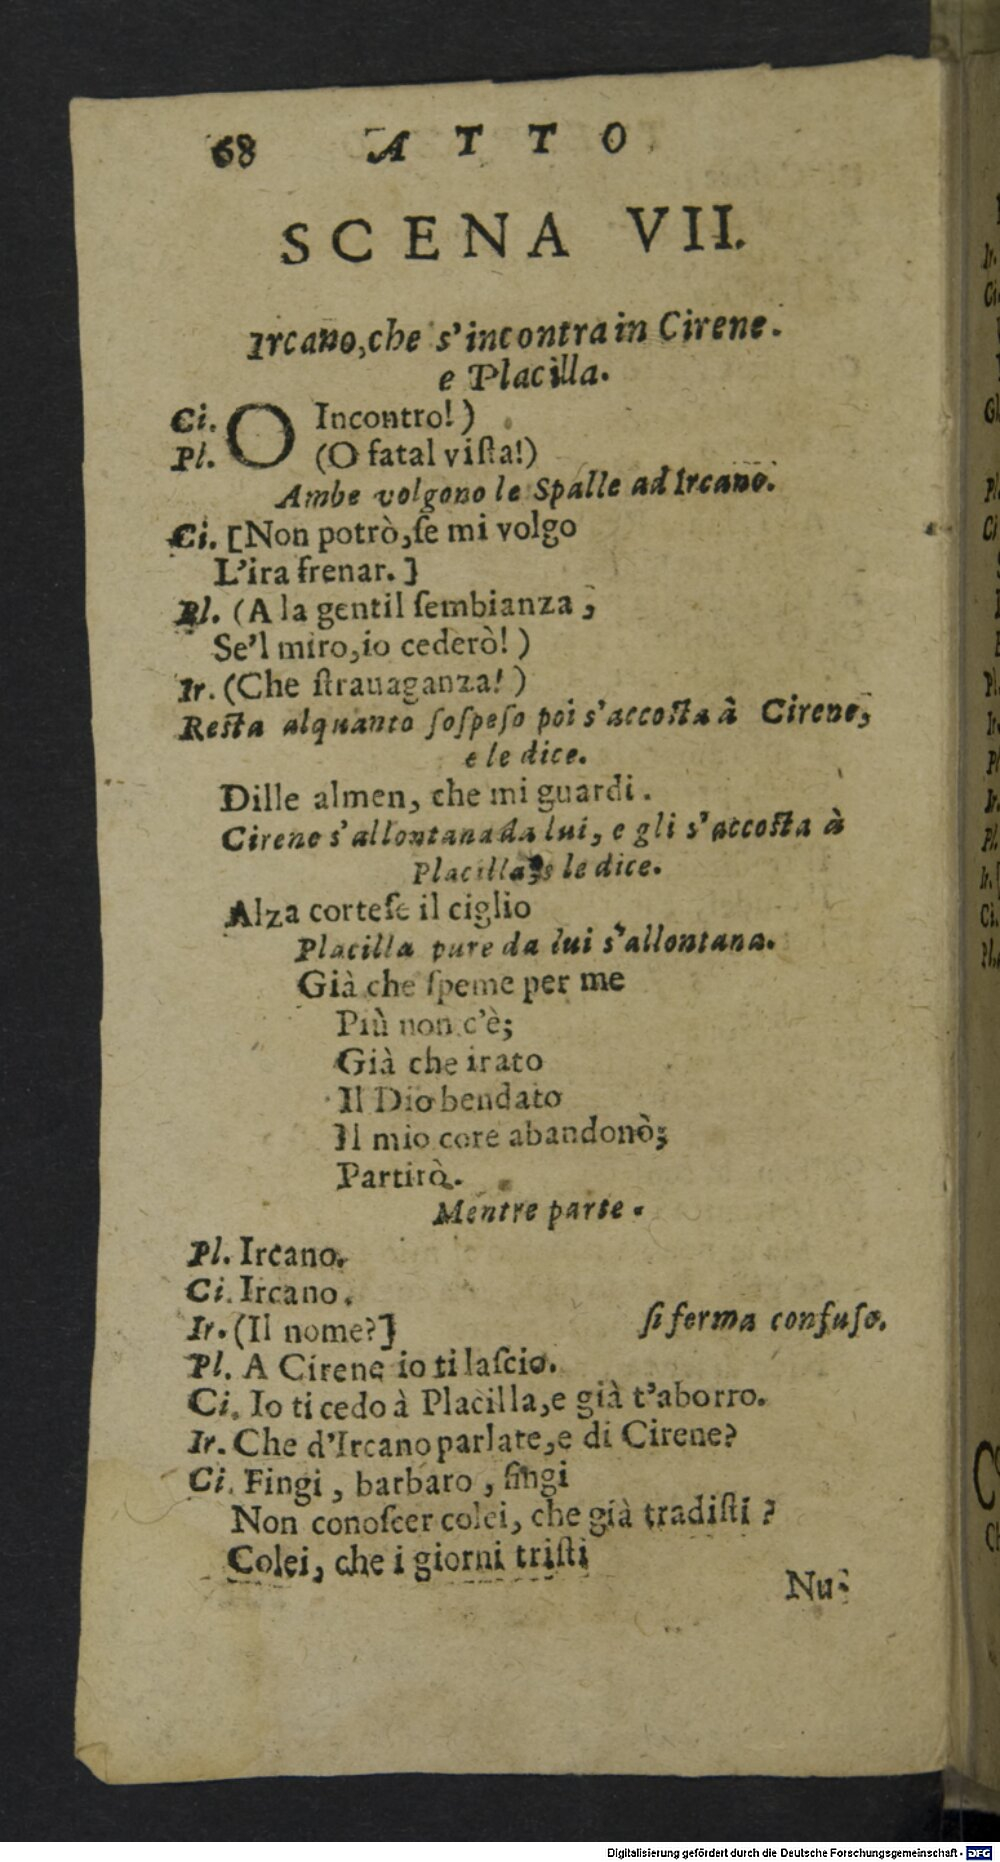 68 ATTO
SCENA VII.
Ircano, che s'incontra in Cirene.
e Placilla.
Ci. O Incontro!)
Pl. (O fatal viſta!)
Ambe volgono le Spalle ad Ircano.
Ci. [Non potrò, ſe mi volgo
L'ira frenar.]
Pl. (A la gentil ſembianza,
Se'l miro, io cederò!)
Ir. (Che ſtrauaganza!)
Reſta alquanto ſoſpeſo poi s'accoſta à Cirene,
e le dice.
Dille almen, che mi guardi.
Cirene s'allontana da lui, e gli s'accoſta à
Placilla, le dice.
Alza corteſe il ciglio
Placilla pure da lui s'allontana.
Già che ſpeme per me
Più non c'è;
Già che irato
Il Dio bendato
Il mio core abandonò;
Partirò.
Mentre parte.
Pl. Ircano.
Ci. Ircano.
Ir. (Il nome?] ſi ferma confuſo.
Pl. A Cirene io ti laſcio.
Ci. Io ti cedo à Placilla, e già t'aborro.
Ir. Che d'Ircano parlate, e di Cirene?
Ci. Fingi, barbaro, fingi
Non conoſcer colei, che già tradiſti?
Colei, che i giorni triſti
Nu-
Digitalisierung gefördert durch die Deutsche Forschungsgemeinschaft - DFG